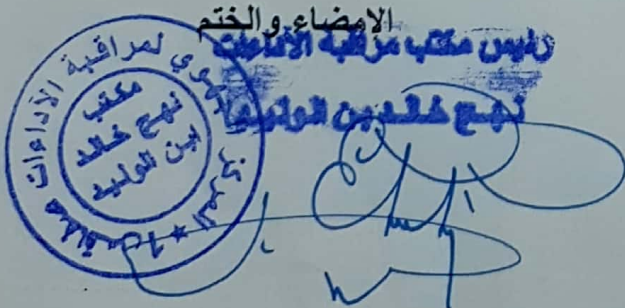 الامضاء والختم
رئيس مكتب مراقبة الأداءات
نهج خالد بن الوليد
المركز الجهوي لمراقبة الأداءات صفاقس 1
مكتب
نهج خالد
بن الوليد